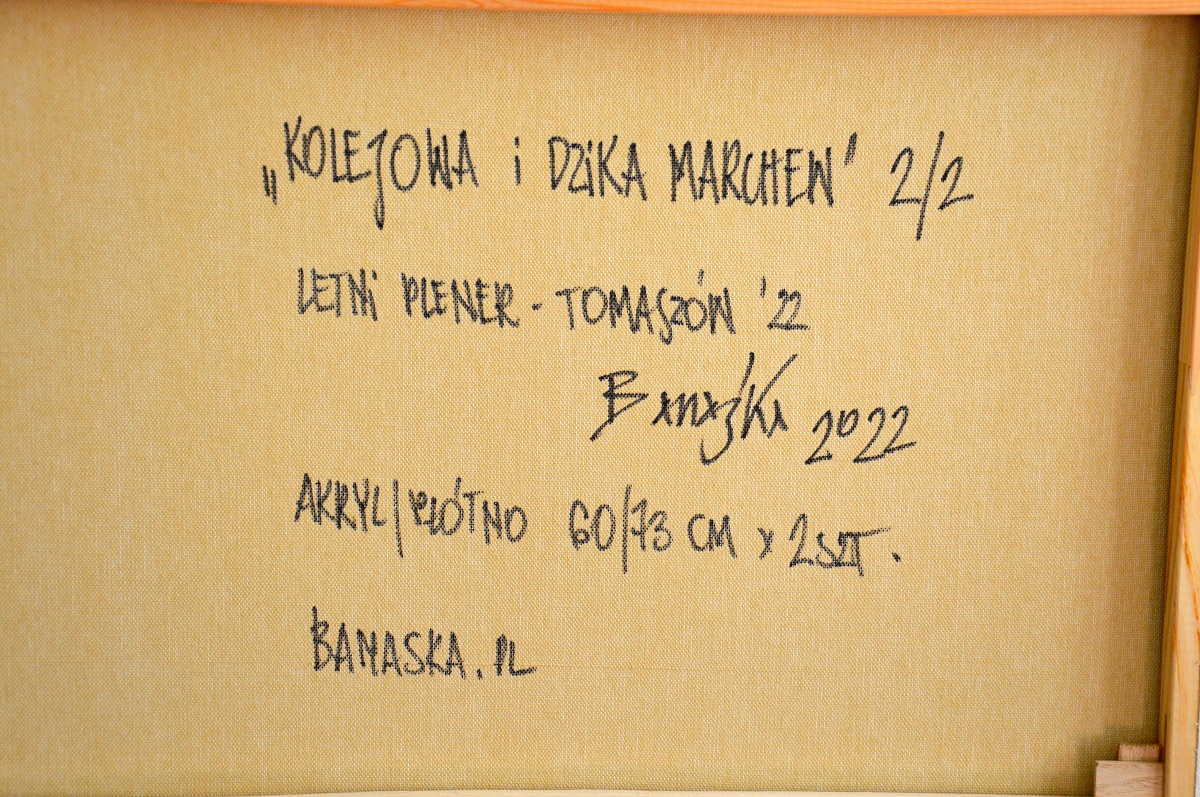 „KOLEJOWA i DZiKA MARCHEW" 2/2
LETNi PLENER - TOMASZÓW '22
2022
AKRYL/PŁÓTNO 60/73 CM x 2SZT.
BANASKA.PL